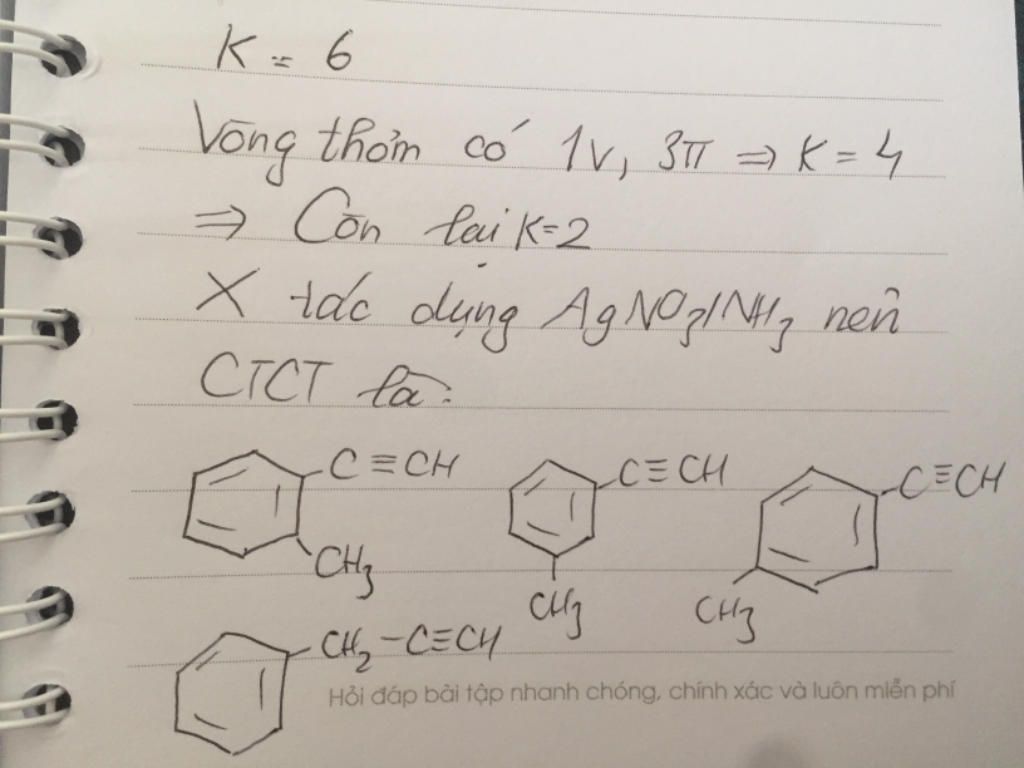 K = 6
Vòng thơm có 1v, 3π ⇒ K = 4
⇒ Còn lại K=2
X tác dụng AgNO3/NH3 nên
CTCT là:
C≡CH C≡CH C≡CH
CH3 CH3 CH3
CH2-C≡CH
Hỏi đáp bài tập nhanh chóng, chính xác và luôn miễn phí